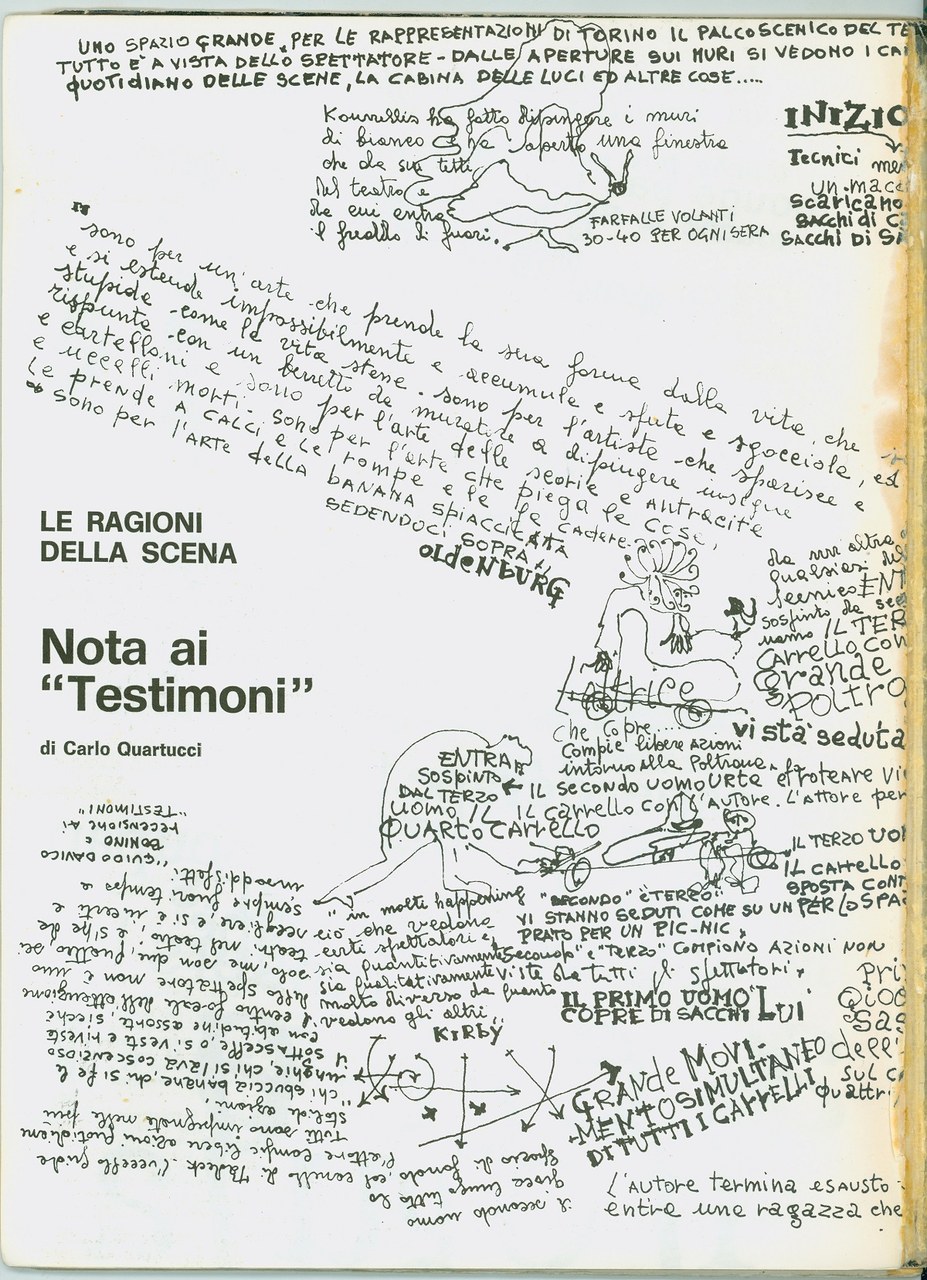 UNO SPAZIO GRANDE, PER LE RAPPRESENTAZIONI DI TORINO IL PALCOSCENICO DEL TE
TUTTO E' A VISTA DELLO SPETTATORE - DALLE APERTURE SUI MURI SI VEDONO I CA
QUOTIDIANO DELLE SCENE, LA CABINA DELLE LUCI ED ALTRE COSE.....
Kounellis ha fatto dipingere i muri
di bianco e ha aperto una finestra
che da sui tetti
del teatro e
da cui entra
il freddo di fuori.
FARFALLE VOLANTI
30-40 PER OGNI SERA
INIZIO
Tecnici
un macc
scaricano
SACCHI di C
SACCHI DI S
"
sono per un'arte che prende la sua forma dalla vita, che
e si estende impossibilmente e accumula e sputa e sgocciola, ed
stupida come la vita stessa. sono per l'artista che sparisce e
rispunta con un berretto da muratore a dipingere insegne
e cartelloni e sono per l'arte delle scorie e antracite
e uccelli morti. sono per l'arte che piega le cose,
le prende A CALCI e le rompe e le fa cadere.
sono per l'ARTE della BANANA SPIACCICATA
SEDENDOCI SOPRA"
OLDENBURG
LE RAGIONI
DELLA SCENA
Nota ai
“Testimoni”
di Carlo Quartucci
da un altra
qualsiasi
scenico ENT
sospinto da
uomo IL TER
CARRELLO CON
Grande
POLTRO
vista seduta
attrice
che copre.....
Compie libere azioni
intorno alla Poltrona
IL SECONDO UOMO URTA
IL CARRELLO CON L'AUTORE. L'ATTORE per
ENTRA
SOSPINTO
DAL TERZO
UOMO IL
QUARTO CARRELLO
IL TERZO UO
IL CARRELLO
SPOSTA CONT
PER LO SPA
"SECONDO" E "TERZO"
VI STANNO SEDUTI COME SU UN
PRATO PER UN PIC-NIC,
"Secondo" e "Terzo" COMPIONO AZIONI NON
viste da tutti gli spettatori.
IL PRIMO UOMO
COPRE DI SACCHI LUI
"in molti happening
ciò che vedono
certi spettatori è,
sia quantitivamente
sia qualitativamente
molto diverso da quanto
vedono gli altri"
KIRBY
GRANDE MOVI-
MENTO SIMULTANEO
DI TUTTI I CARRELLI
Pri
dell'
sul c
quattr
L'AUTORE termina esausto
entra una ragazza che
"TESTIMONI"
recensione ai
BONINO e
"GUIDO DAVICO
insoddisfatti.
sempre fuori tempo e
scegliere, e si è incerti e
teatri nel teatro, e si sa da
solo, ma son due, quattro, sei
dello spettatore non è uno
il centro focale dell'attenzione
con abitudine assorta, sicchè
il sottascella, o si veste e riveste
unghie, chi si lava coscenzioso
chi sbuccia banane, chi si fa le
stesi di azioni,
Tutti sono impegnati nelle più
l'attore compie libere azioni quotidiane
il secondo uomo
gioca lungo tutto lo
spazio di fondo col carrello di Tadeck. l'uccello guida